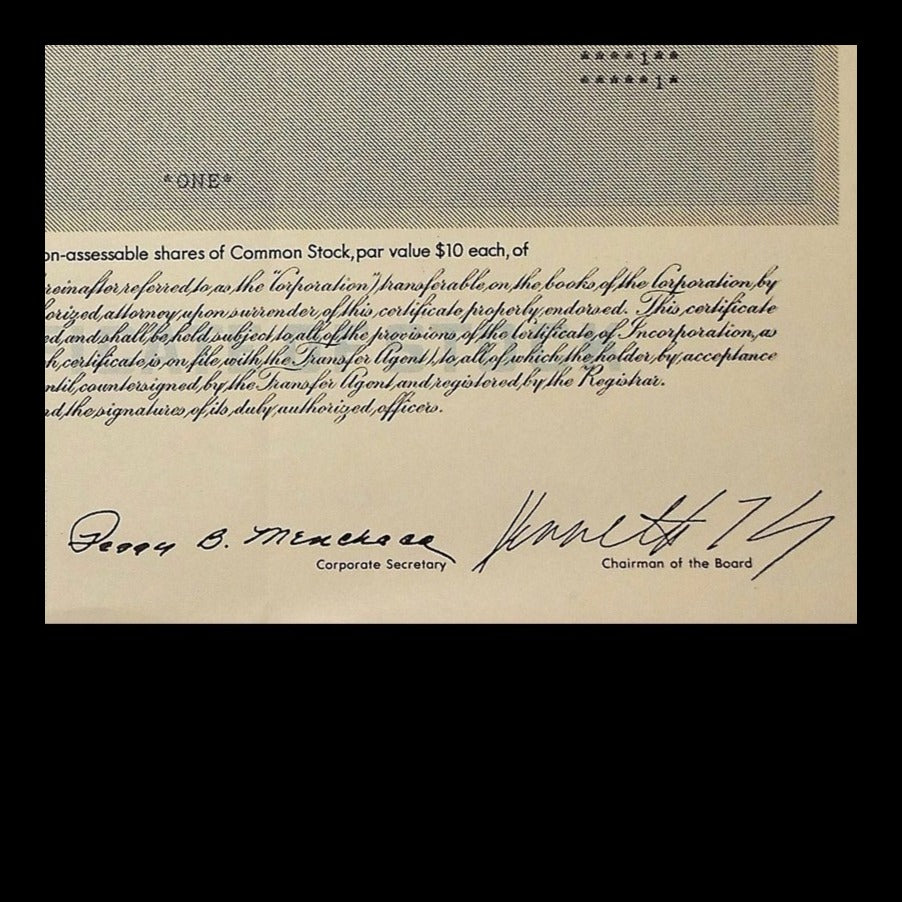 ****1**
*****1*
*ONE*
on-assessable shares of Common Stock, par value $10 each, of
reinafter referred to as the "Corporation") transferable on the books of the Corporation by
orized attorney upon surrender of this certificate properly endorsed. This certificate
ed and shall be held subject to all of the provisions of the Certificate of Incorporation, as
h certificate is on file with the Transfer Agent), to all of which the holder by acceptance
ntil countersigned by the Transfer Agent and registered by the Registrar.
nd the signatures of its duly authorized officers.
Peggy B. Menchaca
Kenneth
Corporate Secretary
Chairman of the Board